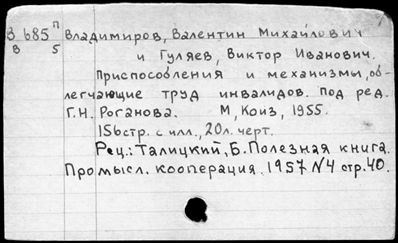 В 685 П Владимиров, Валентин Михайлович
В 5 и Гуляев, Виктор Иванович.
Приспособления и механизмы, об-
легчающие труд инвалидов. Под ред.
Г.Н. Роганова. М, Коиз, 1955.
156 стр. с илл., 20 л. черт.
Рец.: Талицкий, Б. Полезная книга.
Промысл. кооперация. 1957 N4 стр. 40.